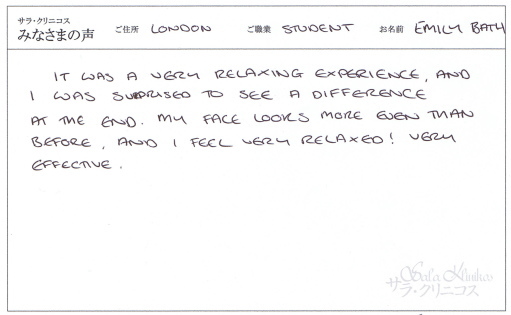 サラ・クリニコス
みなさまの声 ご住所 LONDON ご職業 STUDENT お名前 EMILY BATH
IT WAS A VERY RELAXING EXPERIENCE, AND
I WAS SURPRISED TO SEE A DIFFERENCE
AT THE END. MY FACE LOOKS MORE EVEN THAN
BEFORE, AND I FEEL VERY RELAXED! VERY
EFFECTIVE.
Sala Klinikos
サラ・クリニコス